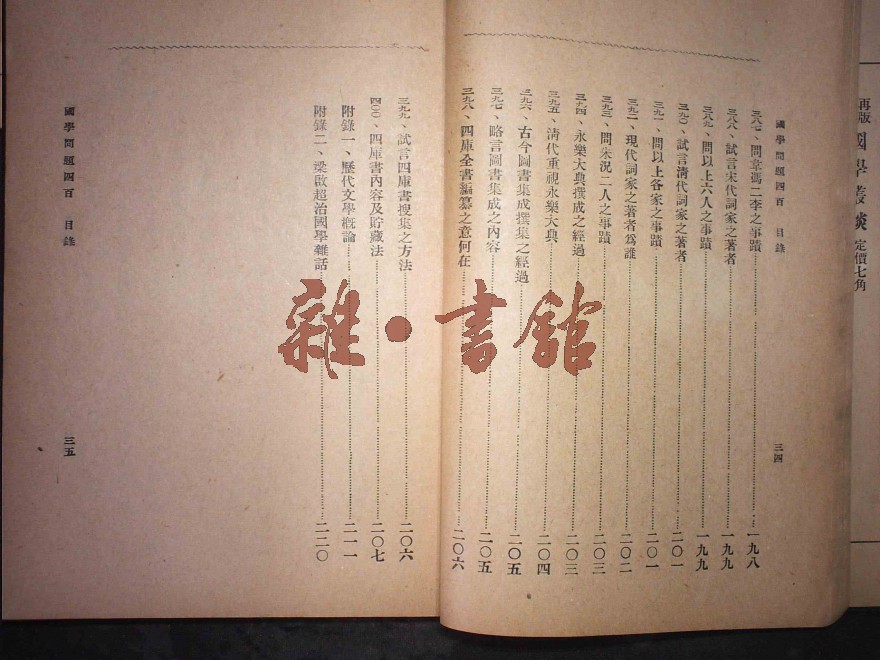 再版 國學叢談 定價七角
國學問題四百 目錄 三四
三八七、問韋馮二李之事蹟 一九八
三八八、試言宋代詞家之著者 一九九
三八九、問以上六人之事蹟 一九九
三九〇、試言清代詞家之著者 二〇一
三九一、問以上各家之事蹟 二〇一
三九二、現代詞家之著者爲誰 二〇二
三九三、問朱況二人之事蹟 二〇三
三九四、永樂大典撰成之經過 二〇三
三九五、清代重視永樂大典 二〇四
三九六、古今圖書集成撰集之經過 二〇五
三九七、略言圖書集成之內容 二〇五
三九八、四庫全書編纂之意何在 二〇六
三九九、試言四庫書搜集之方法 二〇六
四〇〇、四庫書內容及貯藏法 二〇七
附錄一、歷代文學概論 二一一
附錄二、梁啟超治國學雜話 二二〇
國學問題四百 目錄 三五
雜·書館